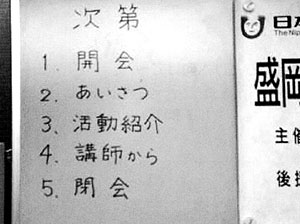 次第
1. 開会
2. あいさつ
3. 活動紹介
4. 講師から
5. 閉会
日本
The Nip
盛岡
主催
後援